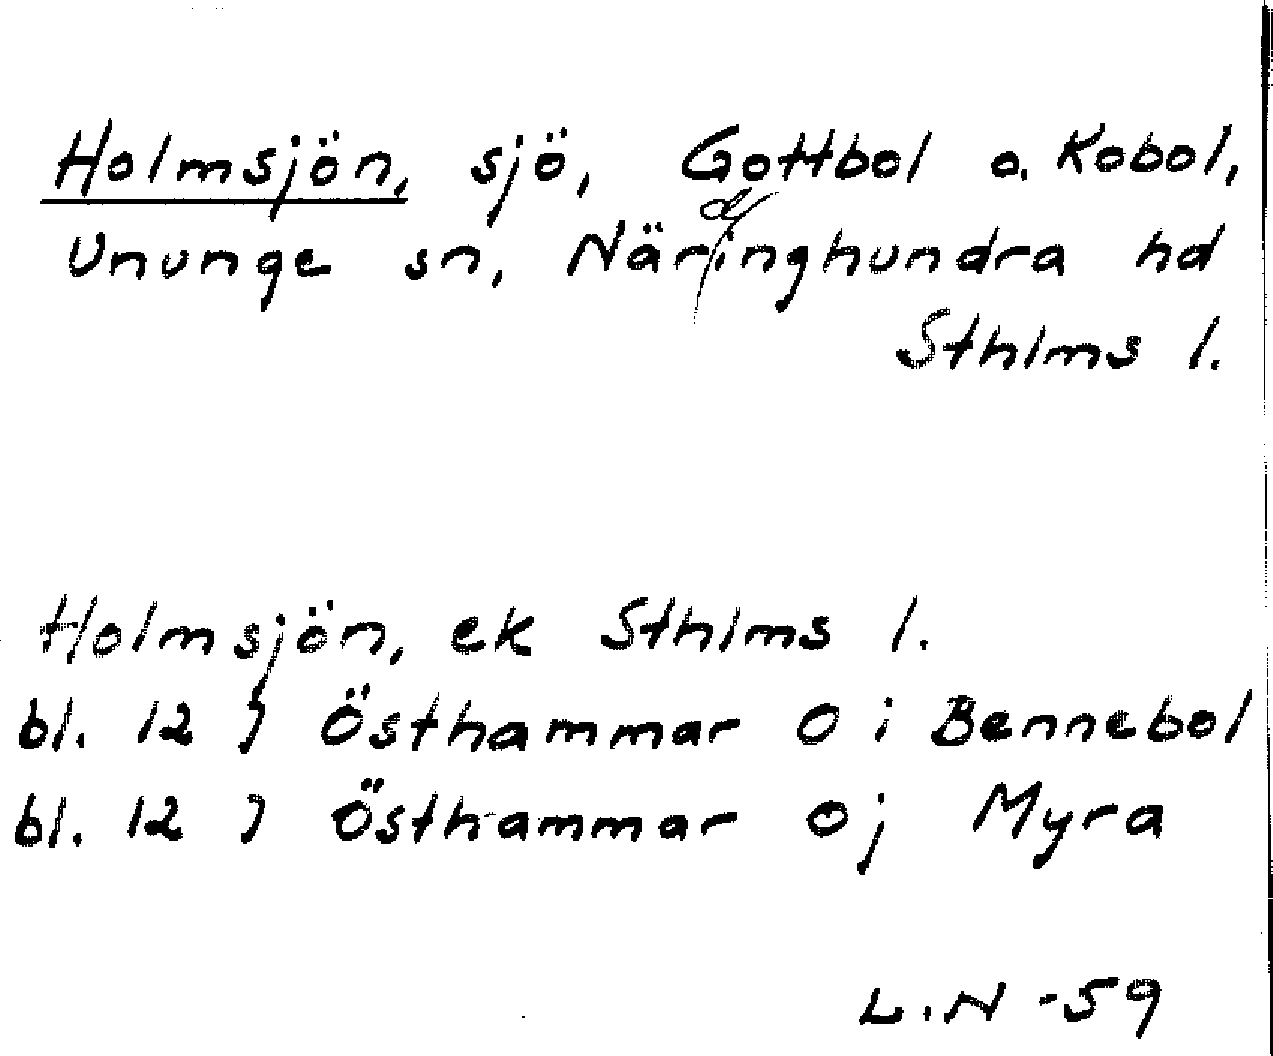 Holmsjön, sjö, Gottbol o. Kobol,
Ununge sn, Närdinghundra hd
Sthlms l.
Holmsjön, ek Sthlms l.
bl. 12 J Östhammar 0 i Bennebol
bl. 12 J Östhammar 0 j Myra
L.N -59